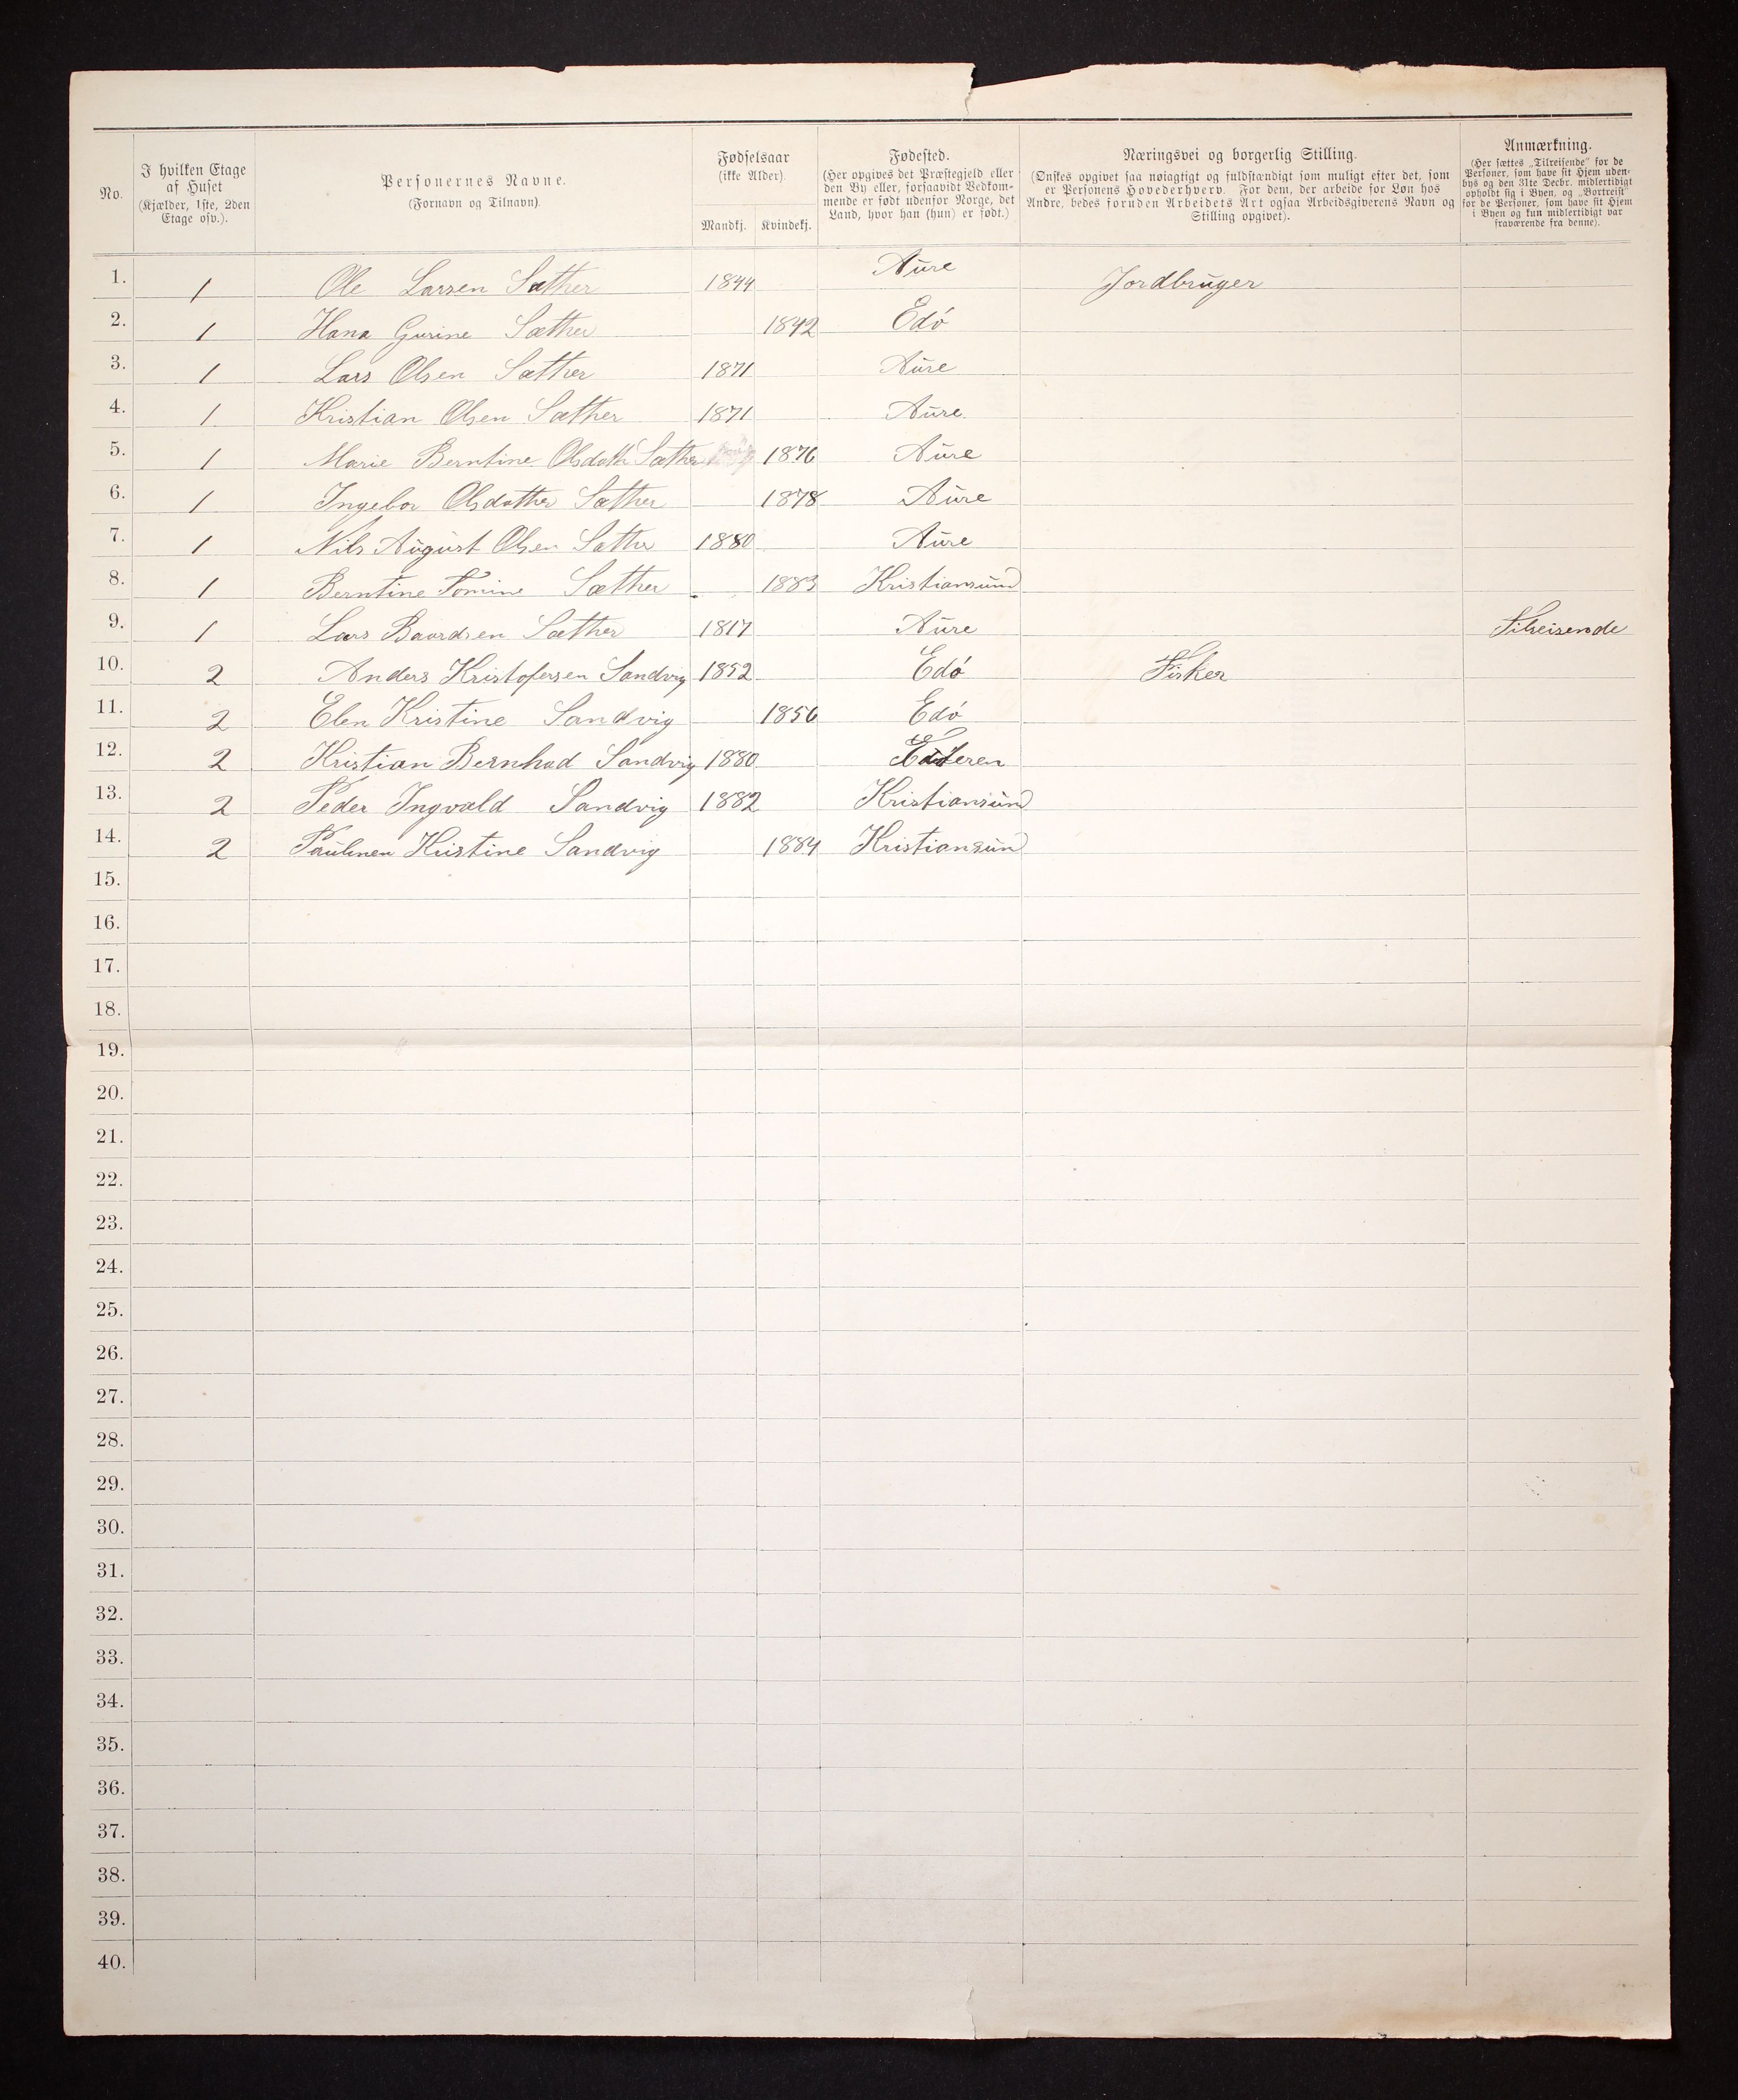 No.
I hvilken Etage af Huset (Kjælder, 1ste, 2den Etage osv.).
Personernes Navne. (Fornavn og Tilnavn)
Fødselsaar (ikke Alder).
Mandkj. Kvindekj.
Fødested. (Her opgives det Præstegjeld eller den By eller, forsaavidt Vedkommende er født udenfor Norge, det Land, hvor han (hun) er født.)
Næringsvei og borgerlig Stilling. (Ønskes opgivet saa nøiagtigt og fuldstændigt som muligt efter det, som er Personens Hovederhverv. For dem, der arbeide for Løn hos Andre, bedes foruden Arbeidets Art ogsaa Arbeidsgiverens Navn og Stilling opgivet).
Anmærkning. (Her sættes „Tilreisende" for de Personer, som have sit Hjem udenbys og den 31te Decbr. midlertidigt opholdt sig i Byen, og „Bortreist" for de Personer, som have sit Hjem i Byen og kun midlertidigt var fraværende fra denne).
1. 1 Ole Larsen Sæther 1844 Aure Jordbruger
2. 1 Hana Gurine Sæther 1842 Edø
3. 1 Lars Olsen Sæther 1871 Aure
4. 1 Kristian Olsen Sæther 1871 Aure
5. 1 Marie Berntine Olsdath Sæther 1876 Aure
6. 1 Ingebor Olsdather Sæther 1878 Aure
7. 1 Nils August Olsen Sæther 1880 Aure
8. 1 Berntine Tomine Sæther 1883 Kristiansund
9. 1 Lars Baardsen Sæther 1817 Aure Tilreisende
10. 2 Anders Kristofersen Sandvig 1852 Edø Fisker
11. 2 Elen Kristine Sandvig 1856 Edø
12. 2 Kristian Bernhad Sandvig 1880
13. 2 Peder Ingvald Sandvig 1882 Kristiansund
14. 2 Kristine Sandvig 1884 Kristiansund
15.
16.
17.
18.
19.
20.
21.
22.
23.
24.
25.
26.
27.
28.
29.
30.
31.
32.
33.
34.
35.
36.
37.
38.
39.
40.